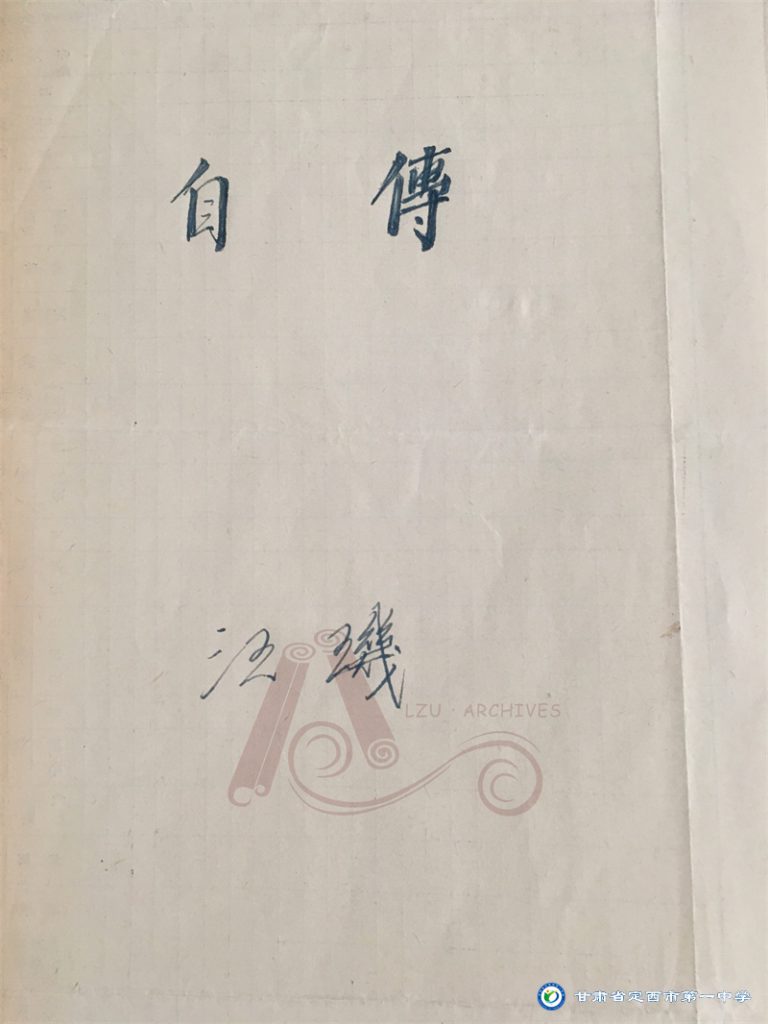 自 傳
汪 璣
LZU · ARCHIVES
甘肃省定西市第一中学